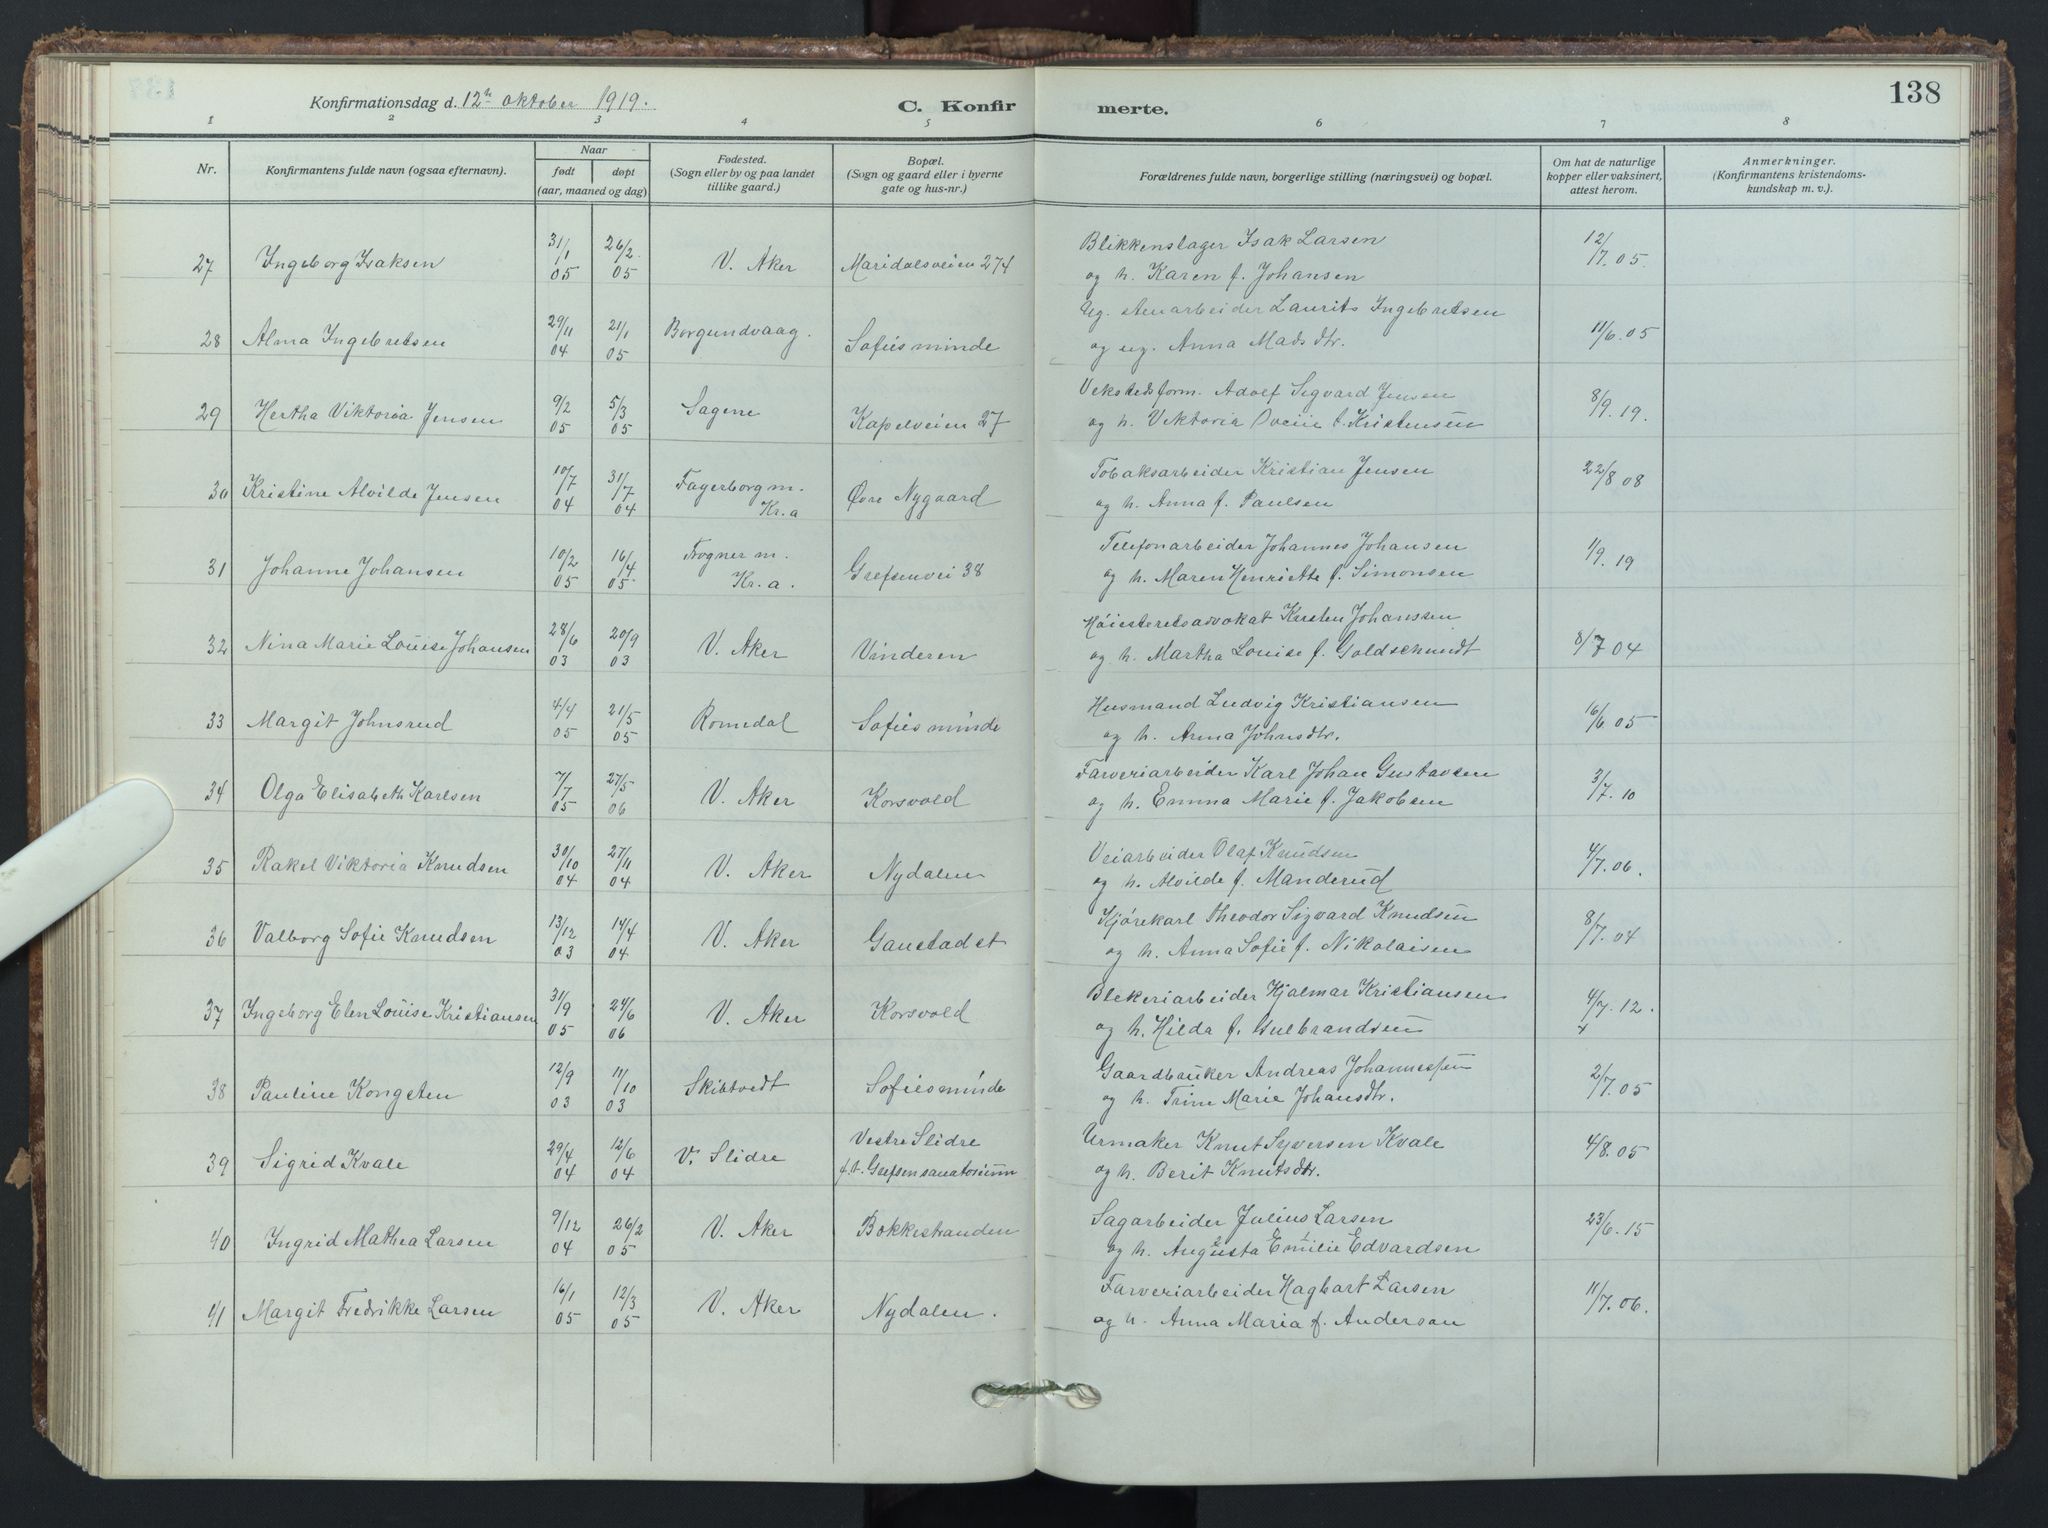 138
Konfirmationsdag d. 12te oktober 1919.
C. Konfirmerte.
1 2 3 4 5 6 7 8
Nr.
Konfirmantens fulde navn (ogsaa efternavn).
Naar
født døpt
(aar, maaned og dag)
Fødested.
(Sogn eller by og paa landet
tillike gaard.)
Bopæl.
(Sogn og gaard eller i byerne
gate og hus-nr.)
Forældrenes fulde navn, borgerlige stilling (næringsvei) og bopæl.
Om hat de naturlige
kopper eller vaksinert,
attest herom.
Anmerkninger.
(Konfirmantens kristendoms-
kundskap m. v.).
27 Ingeborg Isaksen 31/1 05 26/2 05 V. Aker Maridalsveien 274 Blikkenslager Isak Larsen 12/7. 05.
og h. Karen f. Johansen
28 Alma Ingebretsen 29/11 04 21/1 05 Borgundvaag. Sofiesminde Ug. stenarbeider Laurits Ingebretsen 11/6. 05
og ug. Anna Madsdtr.
29 Hertha Viktoria Jensen 9/2 05 5/3 05 Sagene Kapelveien 27 Vekstedsform. Adolf Sigvard Jensen 8/9. 19.
og h. Viktoria f. Kristensen
30 Kristine Alvilde Jensen 10/7 04 31/7 04 Fagerborg m. Kr.a Øvre Nygaard Tobaksarbeider Kristian Jensen 22/8 08
og h. Anna f. Paulsen
31 Johanne Johansen 10/2 05 16/4 05. Frogner m. Kr.a. Grefsenvei 38 Telefonarbeider Johannes Johansen 1/9. 19
og h. Maren Henriette f. Simonsen
32 Nina Marie Louise Johansen 28/6 03 20/9 03 V. Aker Vinderen Høiesteretsadvokat Kersten Johanssen 8/7 04
og h. Martha Louise f. Goldschmidt
33 Margit Johnsrud 4/4 05 21/5 05 Romedal Sofiesminde Husmand Ludvig Kristiansen 16/6 05
og h. Anna Johnsdtr.
34 Olga Elisabeth Karlsen 7/7 05 27/5 06 V. Aker Korsvold Farveriarbeider Karl Johan Gustavsen 3/7. 10
og h. Emma Marie f. Jakobsen
35 Rakel Viktoria Knudsen 30/10 04 27/11 04 V. Aker Nydalen Veiarbeider Olaf Knudsen 4/7. 06.
og h. Alvilde f. Manderud
36 Valborg Sofie Knudsen 13/12 03 14/4 04 V. Aker Gaustadet Kjørekarl Theodor Sigvard Knudsen 8/7. 04
og h. Anna Sofie f. Nikolaisen
37 Ingeborg Elen Louise Kristiansen 31/9 05 24/6 06 V. Aker Korsvold Blekeriarbeider Hjalmar Kristiansen 4/7. 12.
og h. Hilda f. Gulbrandsen
38 Pauline Kongsten 12/9 03 11/10 03 Skibtvedt Sofiesminde Gaardbruker Andreas Johannessen 2/7. 05
og h. Trine Marie Johansdtr.
39 Sigrid Kvale 29/4 04 12/6 04 V. Slidre Vestre Slidre f.t. Grefsensanatorium Urmaker Knut Syversen Kvale 4/8. 05
og h. Berit Knutsdtr.
40 Ingrid Mathea Larsen 9/12 04 26/2 05 V. Aker Bokkestranden Sagarbeider Julius Larsen 23/6. 15
og h. Augusta Emilie Edvardsen
41 Margit Fredrikke Larsen 16/1 05 12/3 05 V. Aker Nydalen. Farveriarbeider Hagbart Larsen 11/7. 06.
og h. Anna Maria f. Anderson